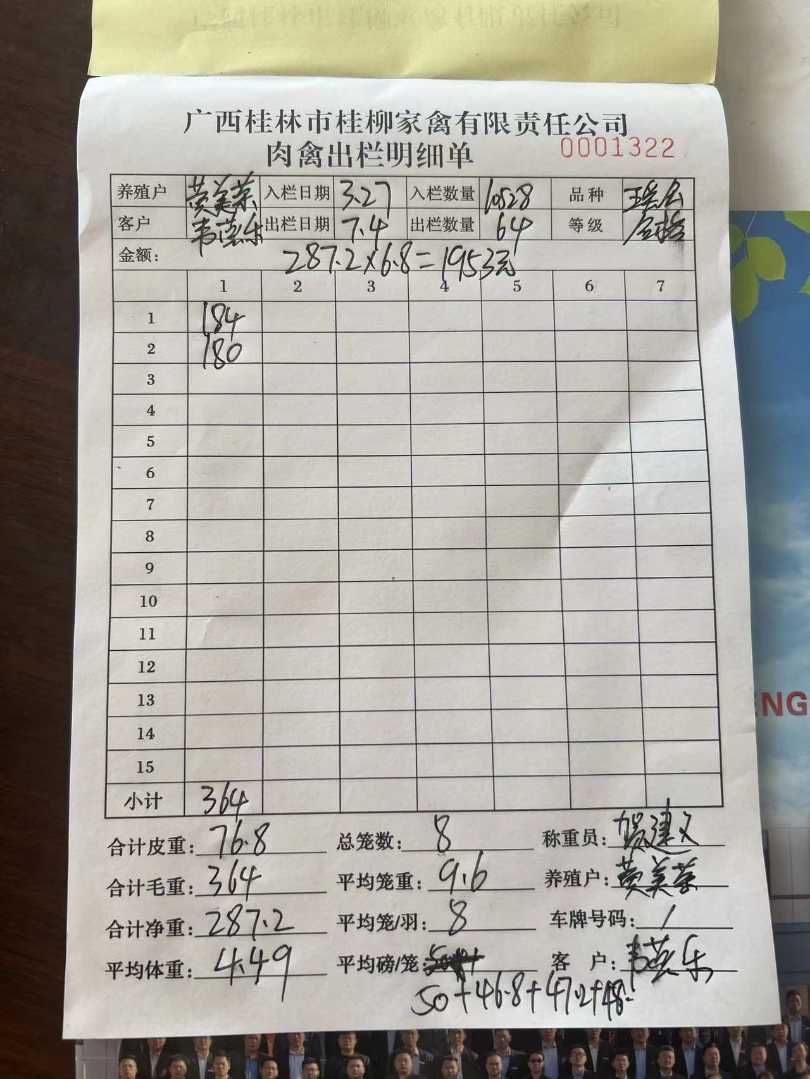 广西桂林市桂柳家禽有限责任公司
肉禽出栏明细单 0001322
养殖户 黄美荣 入栏日期 3.27 入栏数量 10528 品种
客户 出栏日期 7.4 出栏数量 64 等级 合格
金额: 287.2×6.8=1953元
1 2 3 4 5 6 7
1 184
2 180
3
4
5
6
7
8
9
10
11
12
13
14
15
小计 364
合计皮重: 76.8 总笼数: 8 称重员:
合计毛重: 364 平均笼重: 9.6 养殖户: 黄美荣
合计净重: 287.2 平均笼/羽: 8 车牌号码: /
平均体重: 4.49 平均磅/笼: 客 户:
50+46.8+47.2+48.
ENG